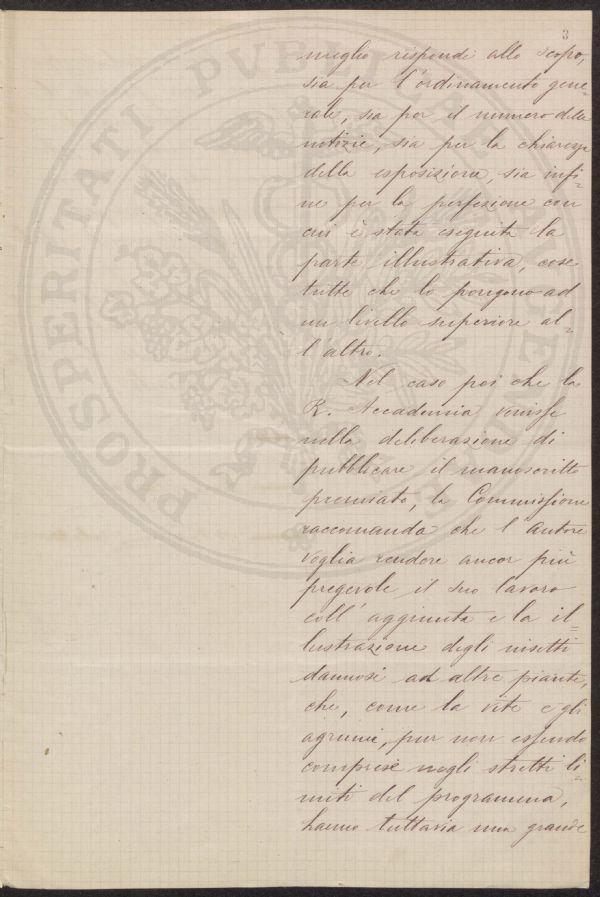 3
meglio rispondi allo scopo,
sia per l'ordinamento gene=
rale, sia per il numero delle
notizie, sia per la chiarezza
della esposizione, sia infi=
ne per la perfezione con
cui è stata eseguita la
parte illustrativa, cose
tutte che lo pongono ad
un livello superiore al=
l'altro.
Nel caso poi che la
R. Accademia venisse
nella deliberazione di
pubblicare il manoscritto
premiato, la Commissione
raccomanda che l'autore
voglia rendere ancor più
pregevole il suo lavoro
coll'aggiunta e la il=
lustrazione degli insetti
dannosi ad altre piante,
che, come la vite e gli
agrumi, pur non essendo
comprese negli stretti li=
miti del programma,
hanno tuttavia una grande
PROSPERITATI PVBLICAE